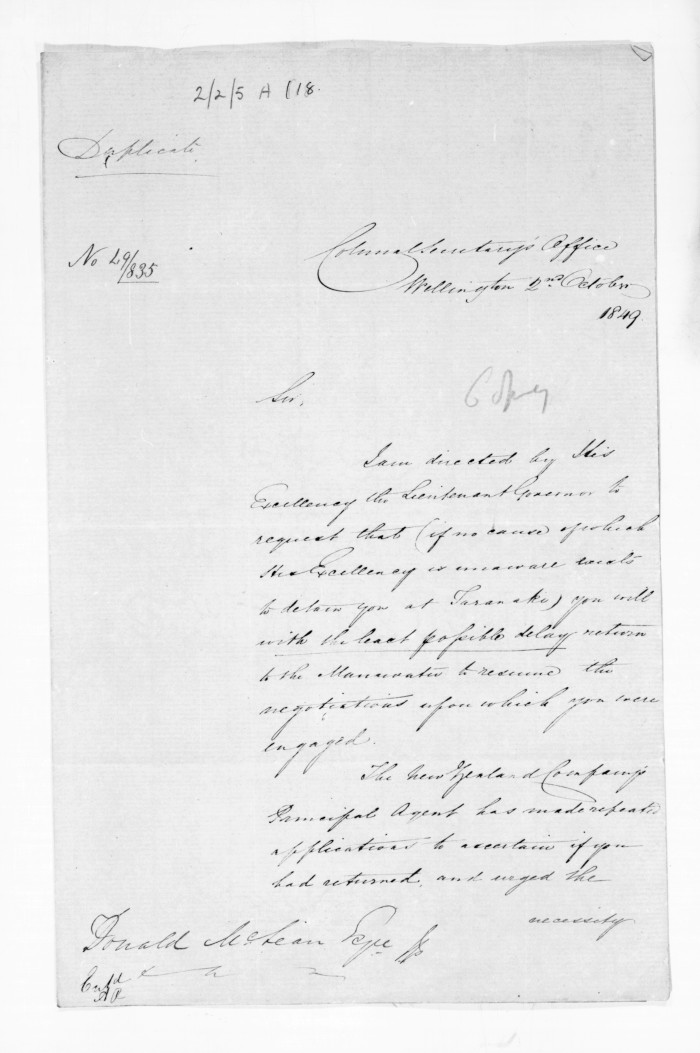 2/2/5 A (18.
Duplicate.
No 49/835
Colonial Secretary's Office
Wellington 2nd October
1849.
Copy
Sir,
I am directed by His
Excellency the Lieutenant Governor to
request that (if no cause of which
His Excellency is unaware exists
to detain you at Taranaki) you will
with the least possible delay return
to the Manawatu to resume the
negotiations upon which you were
engaged.
The New Zealand Company's
Principal Agent has made repeated
applications to ascertain if you
had returned, and urged the
necessity
Donald McLean Esqre